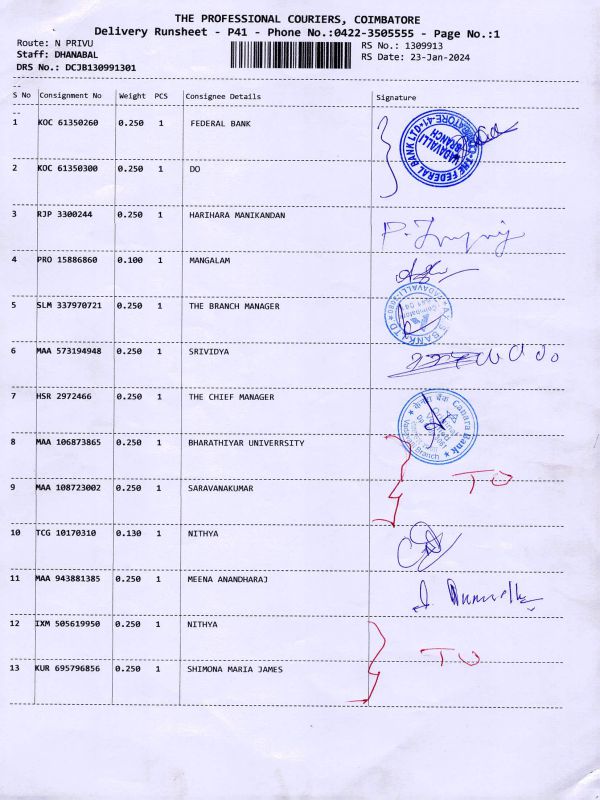 THE PROFESSIONAL COURIERS, COIMBATORE
Delivery Runsheet - P41 - Phone No.:0422-3505555 - Page No.:1
Route: N PRIVU RS No.: 1309913
Staff: DHANABAL RS Date: 23-Jan-2024
DRS No.: DCJB130991301
S No Consignment No Weight PCS Consignee Details Signature
1 KOC 61350260 0.250 1 FEDERAL BANK
THE FEDERAL BANK LTD
VADAVALLI
BRANCH
2 KOC 61350300 0.250 1 DO
3 RJP 3300244 0.250 1 HARIHARA MANIKANDAN
4 PRO 15886860 0.100 1 MANGALAM
5 SLM 337970721 0.250 1 THE BRANCH MANAGER
6 MAA 573194948 0.250 1 SRIVIDYA
7 HSR 2972466 0.250 1 THE CHIEF MANAGER
केनरा बैंक Canara Bank
Branch
8 MAA 106873865 0.250 1 BHARATHIYAR UNIVERRSITY
TO
9 MAA 108723002 0.250 1 SARAVANAKUMAR
10 TCG 10170310 0.130 1 NITHYA
11 MAA 943881385 0.250 1 MEENA ANANDHARAJ
12 IXM 505619950 0.250 1 NITHYA
TO
13 KUR 695796856 0.250 1 SHIMONA MARIA JAMES